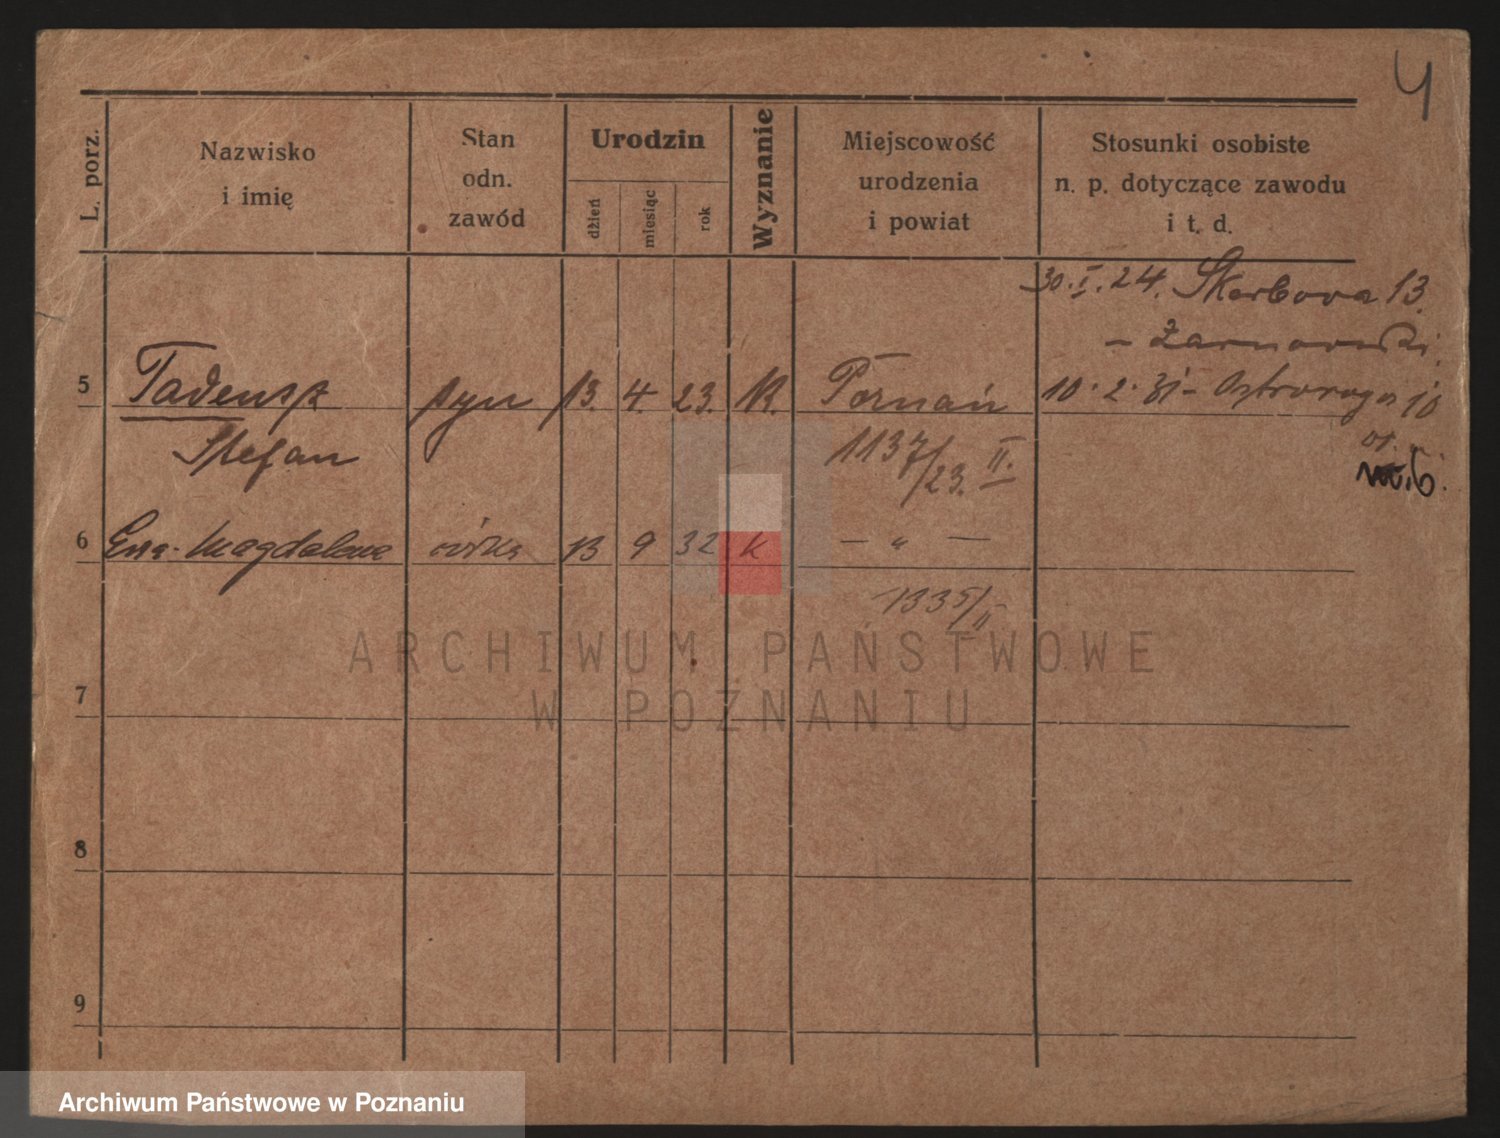 4
L. porz.
Nazwisko
i imię
Stan
odn.
zawód
Urodzin
dzień
miesiąc
rok
Wyznanie
Miejscowość
urodzenia
i powiat
Stosunki osobiste
n. p. dotyczące zawodu
i t. d.
30. I. 24. Skarbowa 13.
– Żarnowski.
5 Tadeusz syn 13. 4. 23. K. Poznań 10. 2. 31 – Ostroroga 10
Stefan 1137/23. II.
m. 6.
6 Ewa-Magdalena córka 13 9 32 K — „ —
1335/II
ARCHIWUM PAŃSTWOWE
W POZNANIU
7
8
9
Archiwum Państwowe w Poznaniu